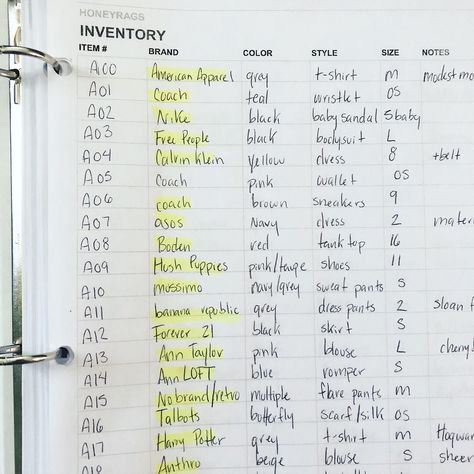 HONEYRAGS
INVENTORY
ITEM # BRAND COLOR STYLE SIZE NOTES
A00 American Apparel gray t-shirt m modest mo
A01 Coach teal wristlet OS
A02 Nike black baby sandal 5 baby
A03 Free People black bodysuit L
A04 Calvin Klein yellow dress 8 +belt
A05 Coach pink wallet OS
A06 coach brown sneakers 9
A07 asos Navy dress 2 mater
A08 Boden red tank top 16
A09 Hush Puppies pink/taupe shoes 11
A10 mossimo navy/grey sweat pants S
A11 banana republic grey dress pants 2 sloan f
A12 Forever 21 black skirt S
A13 Ann Taylor pink blouse L cherry b
A14 Ann LOFT blue romper S
A15 No brand/retro multiple flare pants m
A16 Talbots butterfly scarf/silk OS
A17 Harry Potter grey t-shirt m Hogwar
A18 Anthro beige blouse S sheer